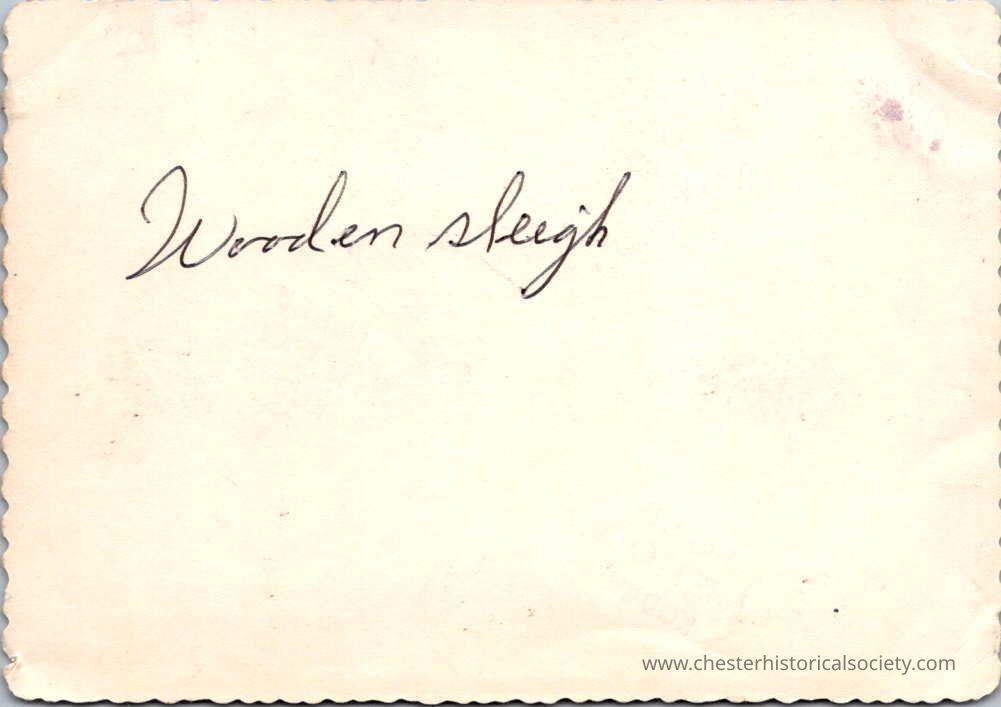 Wooden sleigh
www.chesterhistoricalsociety.com